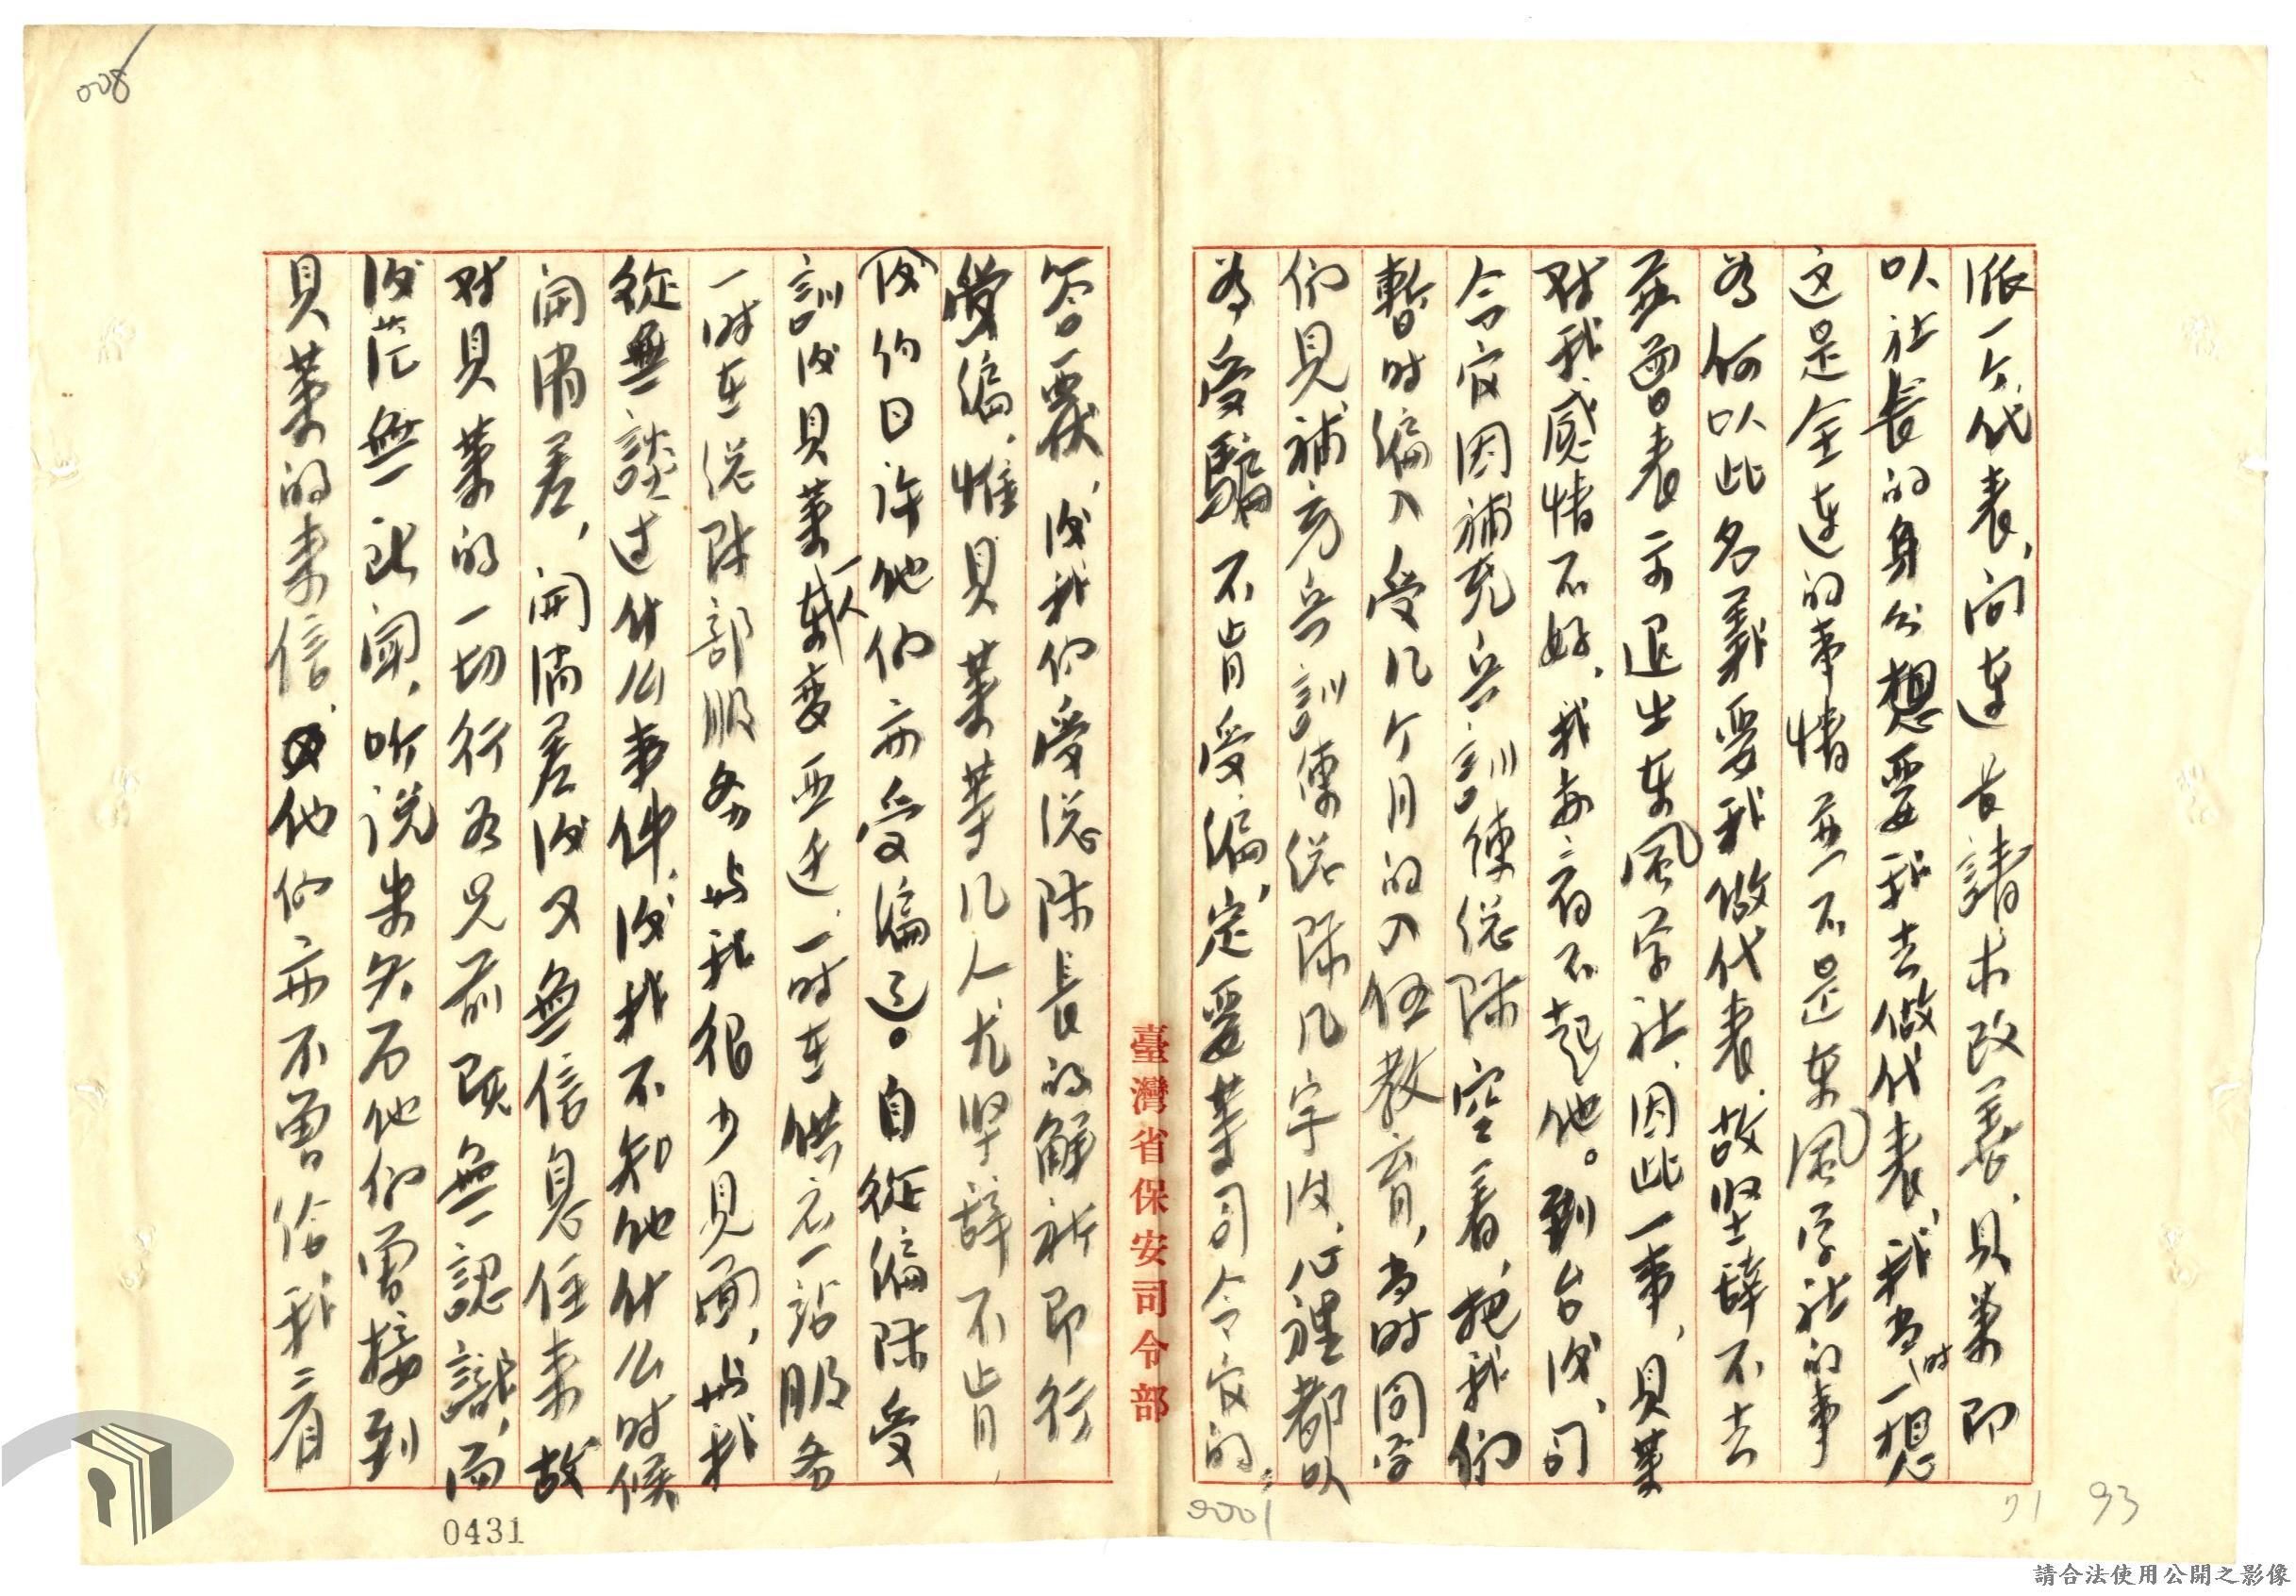 008
派一个代表,向連長請求改善,貝葉即
以社長的身分想要我去做代表,我当时一想
这是全連的事情並不是東風学社的事
为何以此名義要我做代表,故坚辞不去
並曾表示退出東風学社,因此一事,貝葉
对我感情不好,我亦看不起他。到台後,司
令官因補充兵訓練總隊空着,把我們
暫时編入受几个月的入伍教育,当时同学
們見補充兵訓練總隊几字後,心裡都以
为受騙不肯受編,定要等司令官的
答覆,後我们受總隊長的解釈即行
受編,惟貝葉等几人尤坚辞不肯,
(後約日許他们亦受編了)。自從編隊受
訓後貝葉一人变更迁,一时在供应一站服务
一时在總隊部服务與我很少見面,與我
從無談过什么事件,後我不知他什么时候
開溜差,開溜差後又無信息往来故
对貝葉的一切行为児前既無認識,而
後茫無訊聞,听说朱矢石他们曾接到
貝葉的来信,他们亦不曾給我看
臺灣省保安司令部
0431
0001
71 93
請合法使用公開之影像